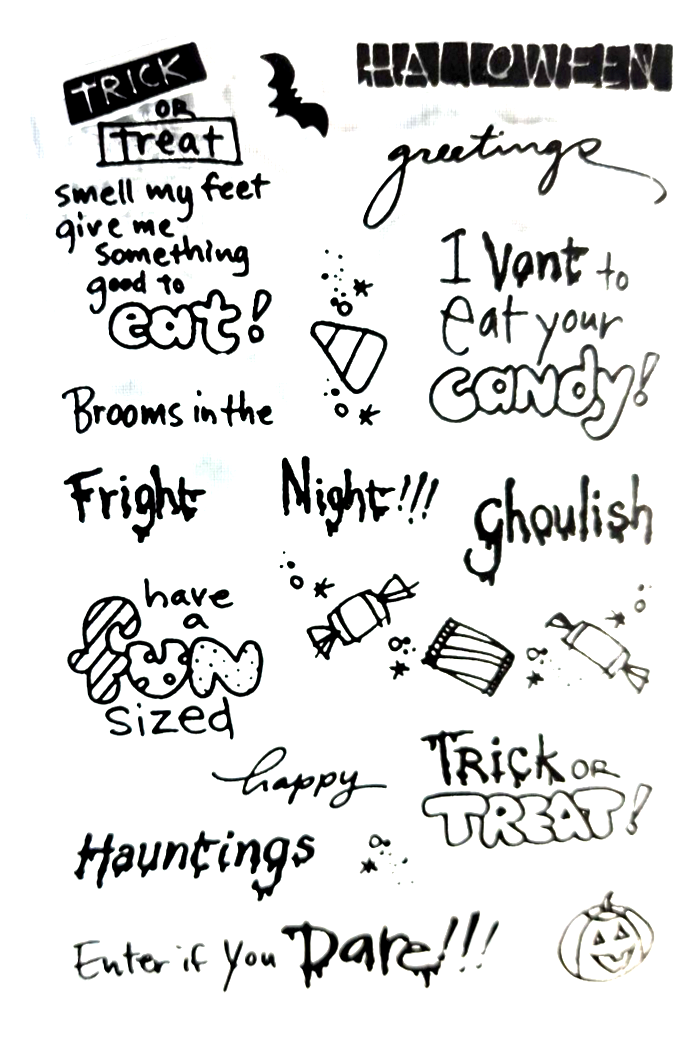 TRICK
OR
treat
smell my feet
give me
something
good to
eat!
HALLOWEEN
greetings
I Vant to
eat your
CANDY!
Brooms in the
Fright Night!!!
Ghoulish
have
a
fun
sized
happy
Hauntings
TRicK OR
TREAT!
Enter if You Dare!!!